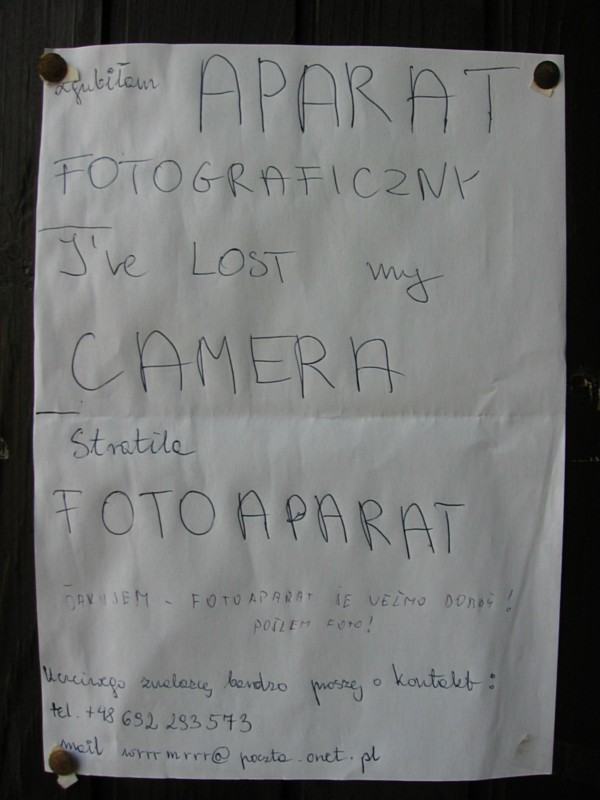 Zgubiłam APARAT
FOTOGRAFICZNY
I've LOST my
CAMERA
Stratila
FOTOAPARAT
ĎAKUJEM - FOTOAPARAT JE VEĽMO DOBRÝ!
POŠLEM FOTO!
Uczciwego znalazcę bardzo proszę o kontakt:
tel. +48 692 293 573
mail wrrrmrrr@poczta.onet.pl